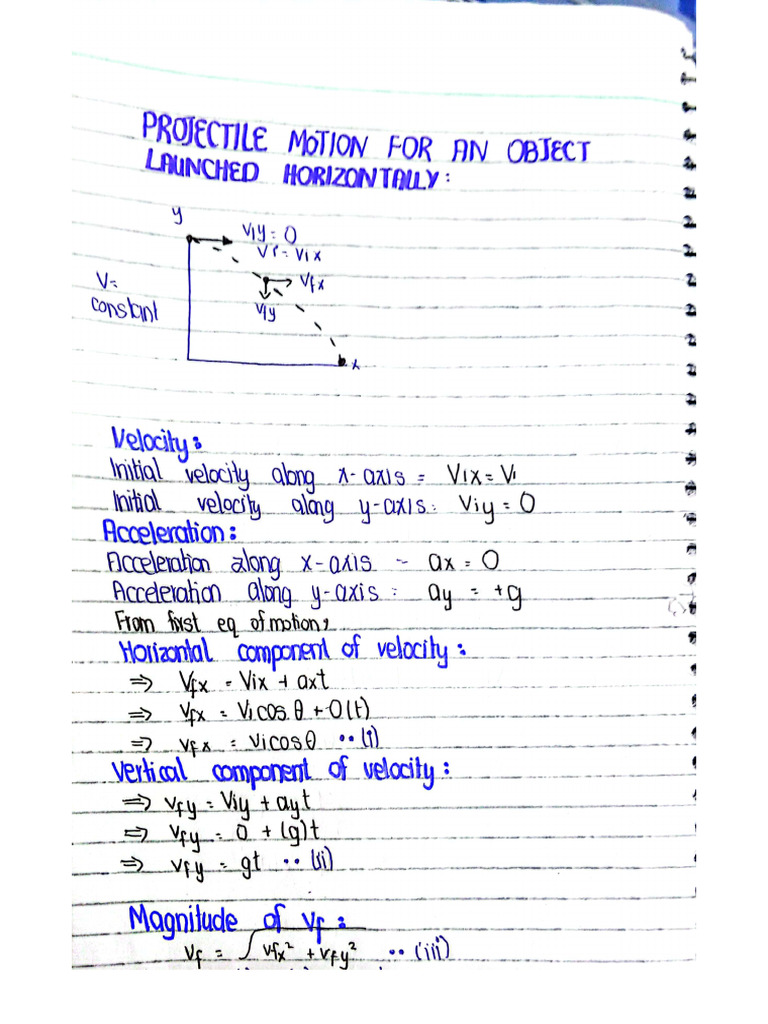 PROJECTILE MOTION FOR AN OBJECT
LAUNCHED HORIZONTALLY:
y
Viy = 0
Vi = Vix
Vfx
V=
constant
Viy
x
Velocity:
Initial velocity along x-axis = Vix = Vi
Initial velocity along y-axis: Viy = 0
Acceleration:
Acceleration along x-axis - ax = 0
Acceleration along y-axis = ay = +g
From first eq of motion,
Horizontal component of velocity:
⇒ Vfx = Vix + axt
⇒ Vfx = Vicosθ + 0(t)
⇒ Vfx = Vicosθ •• (i)
Vertical component of velocity:
⇒ Vfy = Viy + ayt
⇒ Vfy = 0 + (g)t
⇒ Vfy = gt •• (ii)
Magnitude of Vf:
Vf = √Vfx² + Vfy² •• (iii)